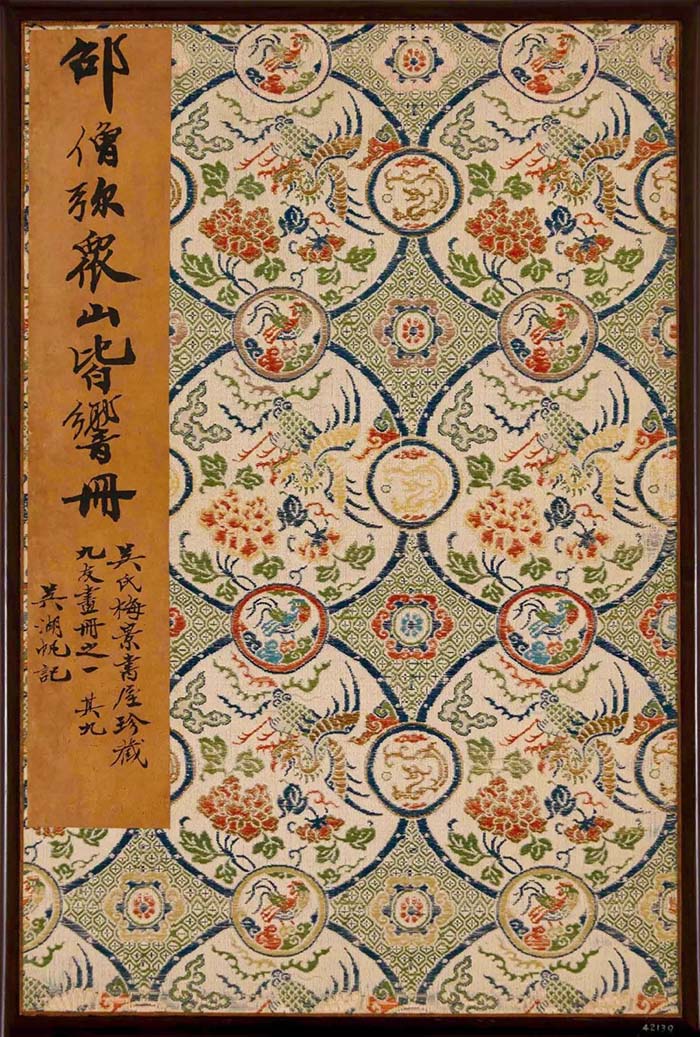 邵僧弥眾山皆響冊
吳氏梅景書屋珍藏
九友畫冊之一 其九
吳湖帆記
42130